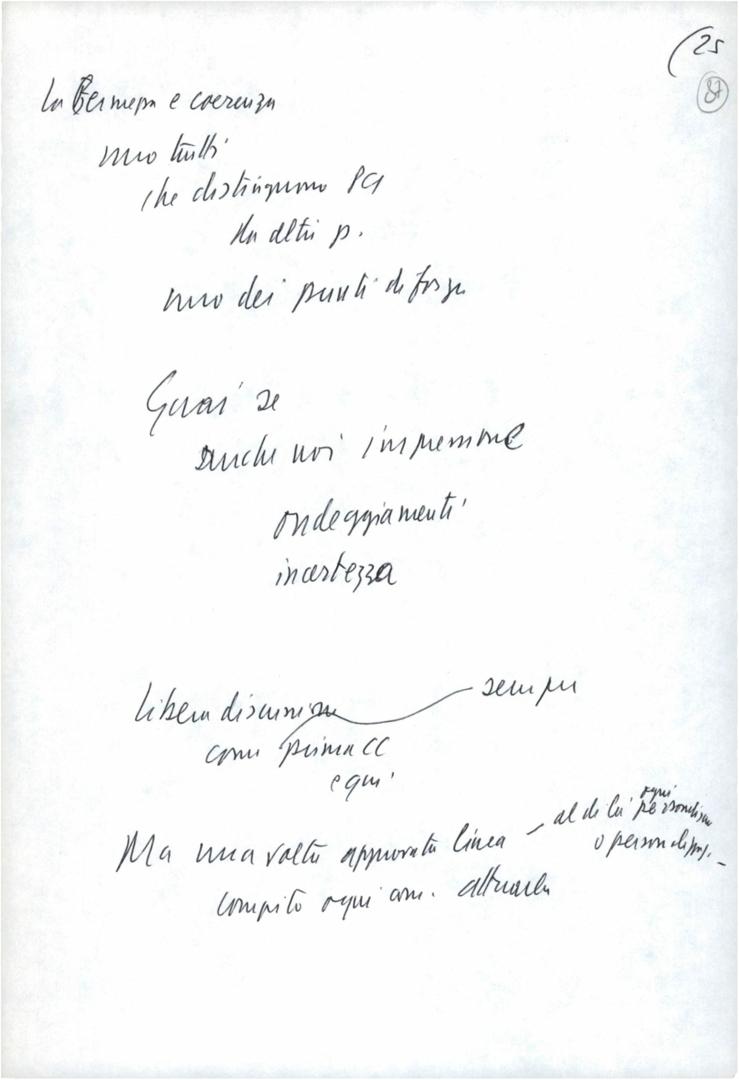 (25
87
La fermezza e coerenza
uno tratti
che distinguono PCI
da altri p.
uno dei punti di forza
Guai se
anche noi impressione
ondeggiamenti
incertezza
Libera discussione sempre
come prima CC
e qui
Ma una volta approvata linea – al di là ogni personalismo
o
compito ogni com. attuarla